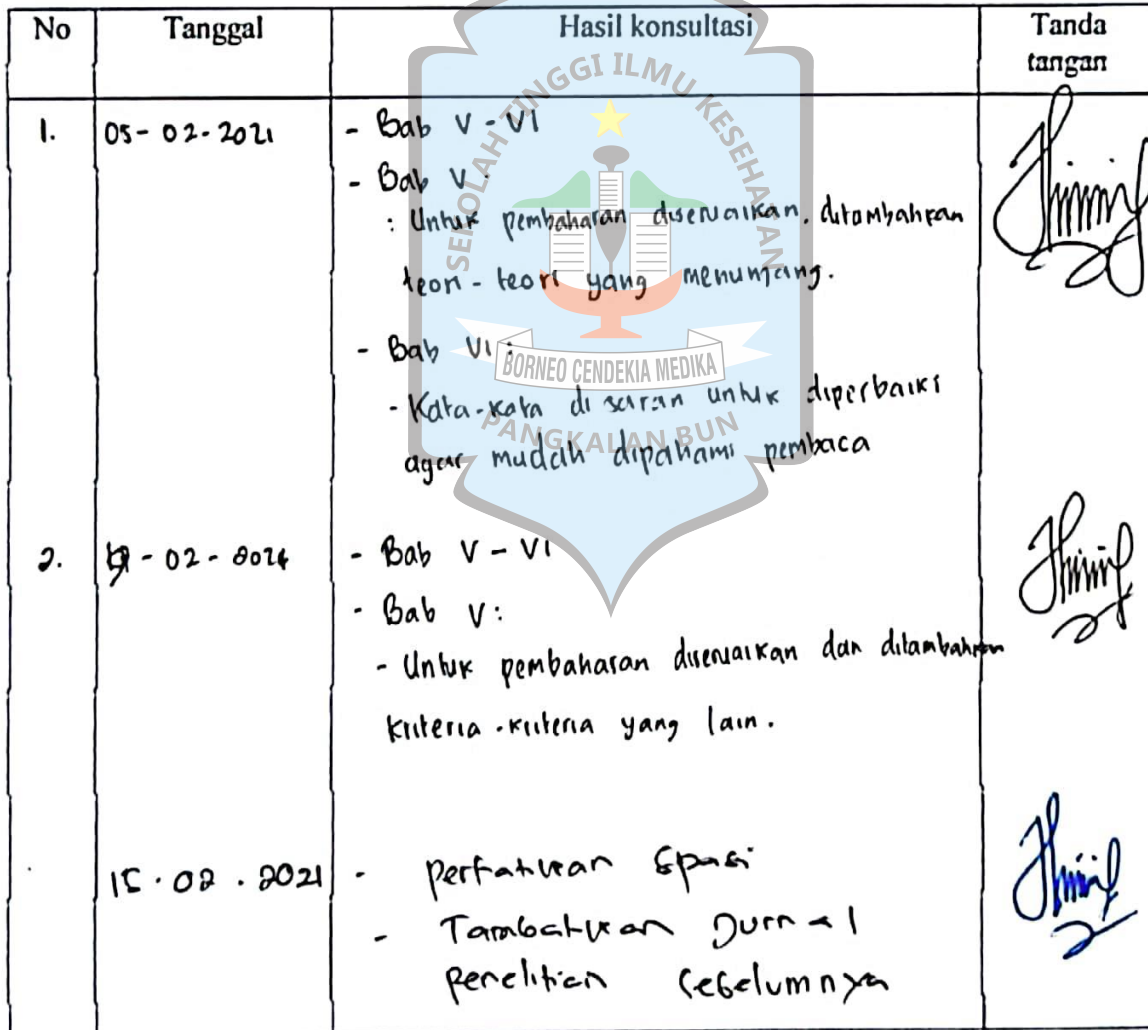 No Tanggal Hasil konsultasi Tanda
tangan
1. 05-02-2021 - Bab V - VI
- Bab V :
: Untuk pembahasan disesuaikan, ditambahkan
teori-teori yang menunjang.
- Bab VI :
- Kata-kata di saran untuk diperbaiki
agar mudah dipahami pembaca
2. -02-2021 - Bab V - VI
- Bab V :
- Untuk pembahasan disesuaikan dan ditambahkan
kriteria-kriteria yang lain.
15.02.2021 - Perhatikan spasi
- Tambahkan Jurnal
penelitian sebelumnya
SEKOLAH TINGGI ILMU KESEHATAN
BORNEO CENDEKIA MEDIKA
PANGKALAN BUN